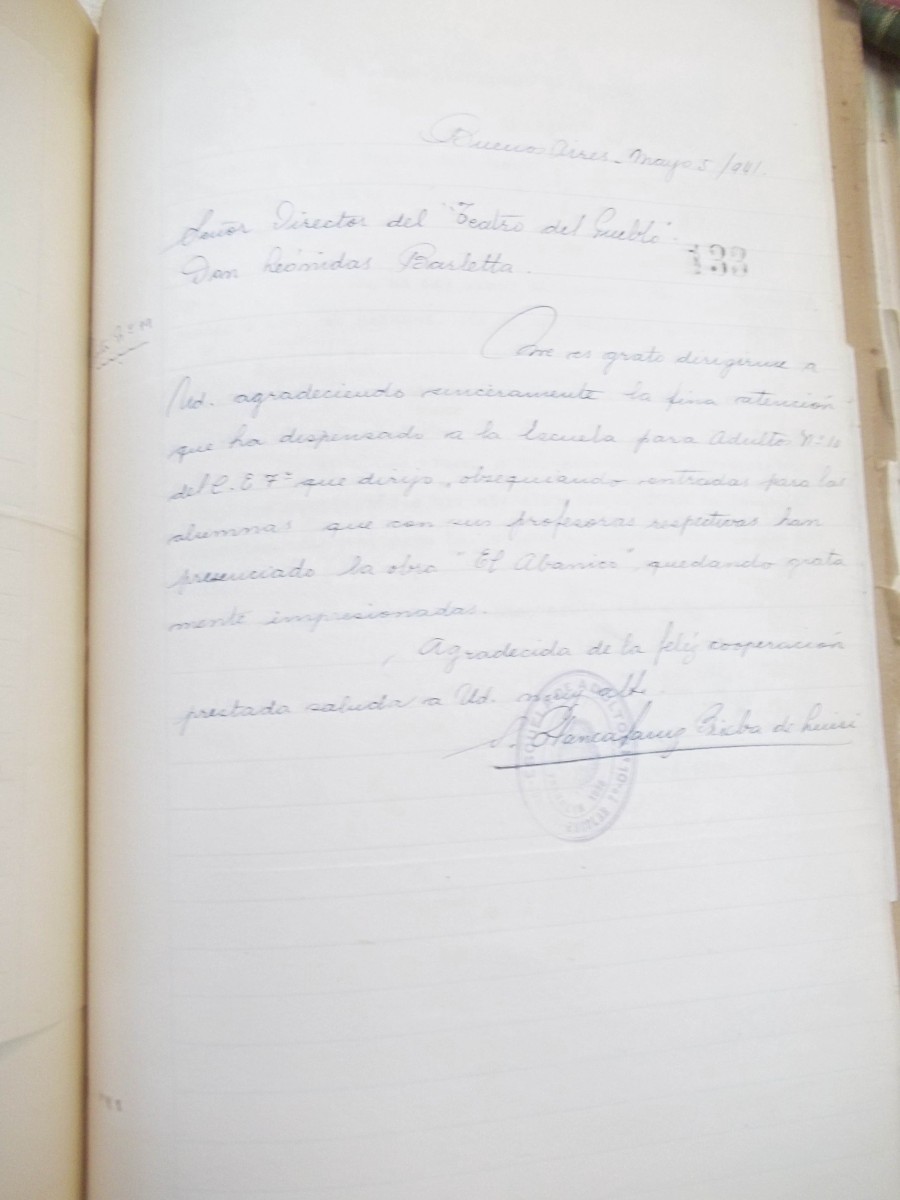 Buenos Aires - Mayo 5/941.
Señor Director del "Teatro del Pueblo".
Don Leónidas Barletta.
133
Me es grato dirigirme a
Ud. agradeciendo sinceramente la fina atención
que ha dispensado a la Escuela para Adultos Nº 10
del C. E 7º que dirijo, obsequiando entradas para las
alumnas que con sus profesoras respectivas han
presenciado la obra "El Abanico", quedando grata
mente impresionadas.
Agradecida de la feliz cooperación
prestada saluda a Ud. muy att.
Blanca de
ESCUELA ADULTOS Nº 10